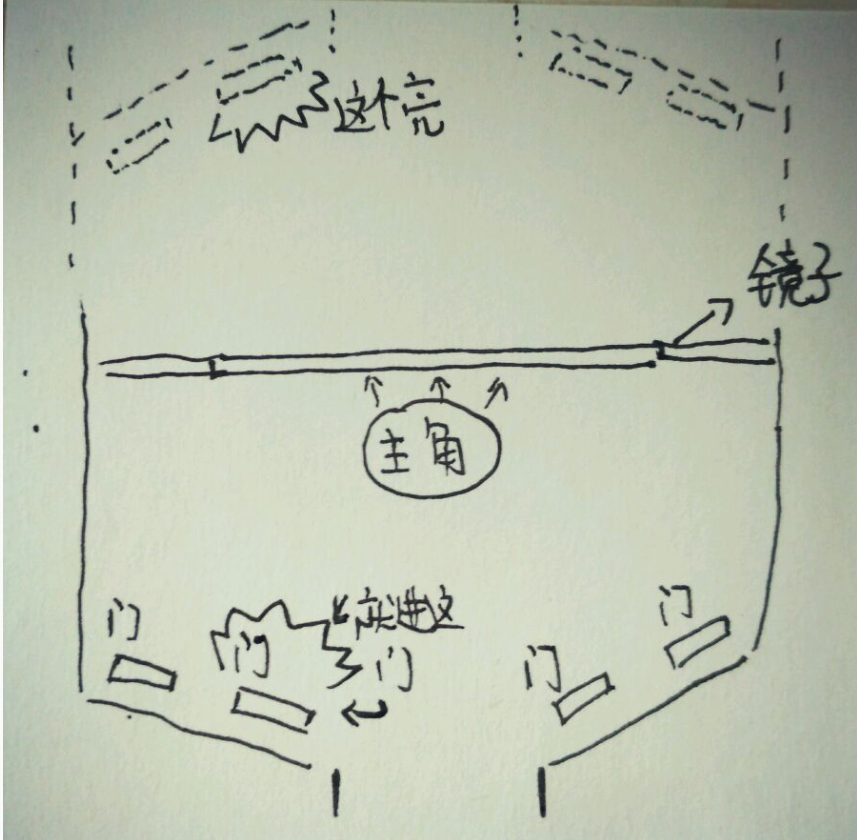 这个亮
镜子
主角
门
门
应进这门
门
门